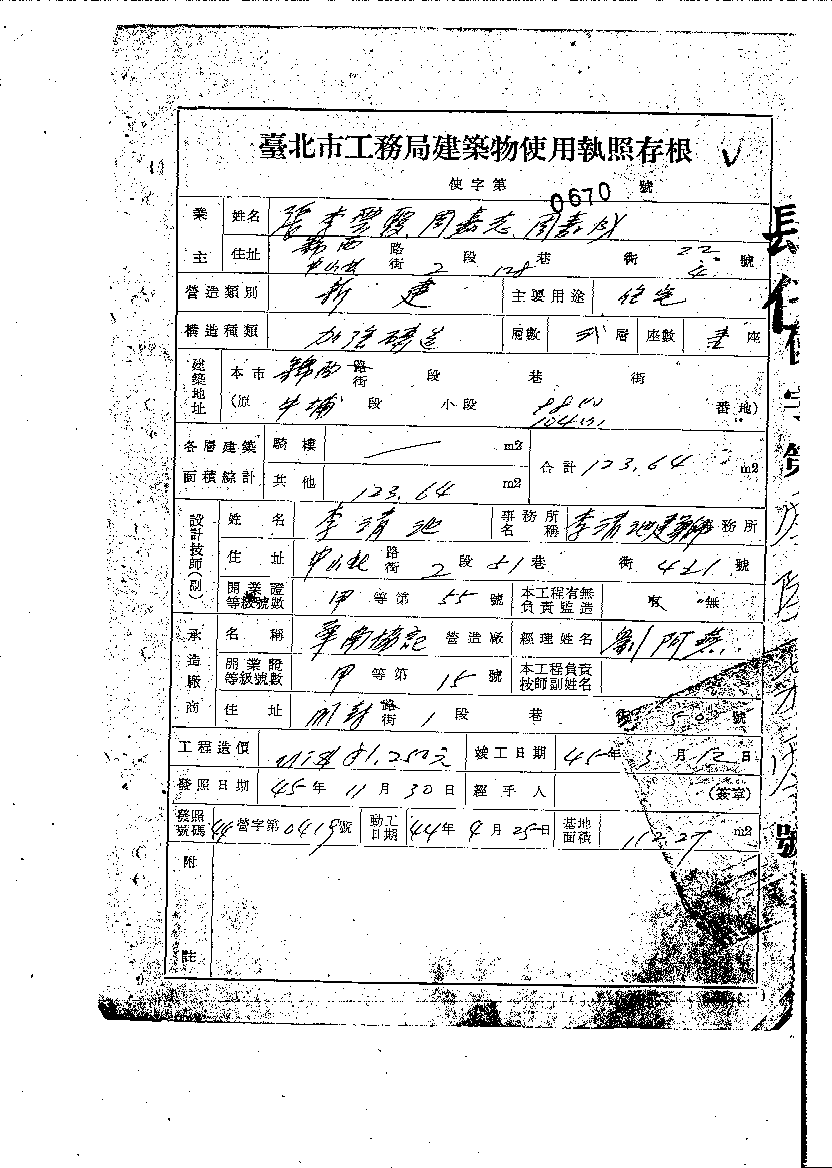 臺北市工務局建築物使用執照存根
使字第 0670 號
業主 姓名 張李雲霞 周嘉志 周嘉成
住址 錦西 中山北 路街 2 段 128 巷 街 22 4 號
營造類別 新建 主要用途 住宅
構造種類 加強磚造 層數 弍層 座數 壹座
建築地址 本市 錦西 路街 段 巷 街
(原 牛埔 段 小段 番地)
各層建築面積綜計 騎樓 — m2 合計 123.64 m2
其他 123.64 m2
設計技師(副) 姓名 李清池 事務所名稱 李清池建築師事務所
住址 中山北 路街 2 段 81 巷 街 421 號
開業證等級號數 甲等第 55 號 本工程有無負責監造 有 無
承造廠商 名稱 華南協記 營造廠 經理姓名 劉阿燕
開業證等級號數 甲等第 15 號 本工程負責技師副姓名
住址 開封 路街 1 段 巷 50 號
工程造價 81,250元 竣工日期 45年 3月 12日
發照日期 45年 11月 30日 經手人 (簽章)
發照號碼 44營字第0419號 動工日期 44年 9月 25日 基地面積 112.27 m2
附註
號